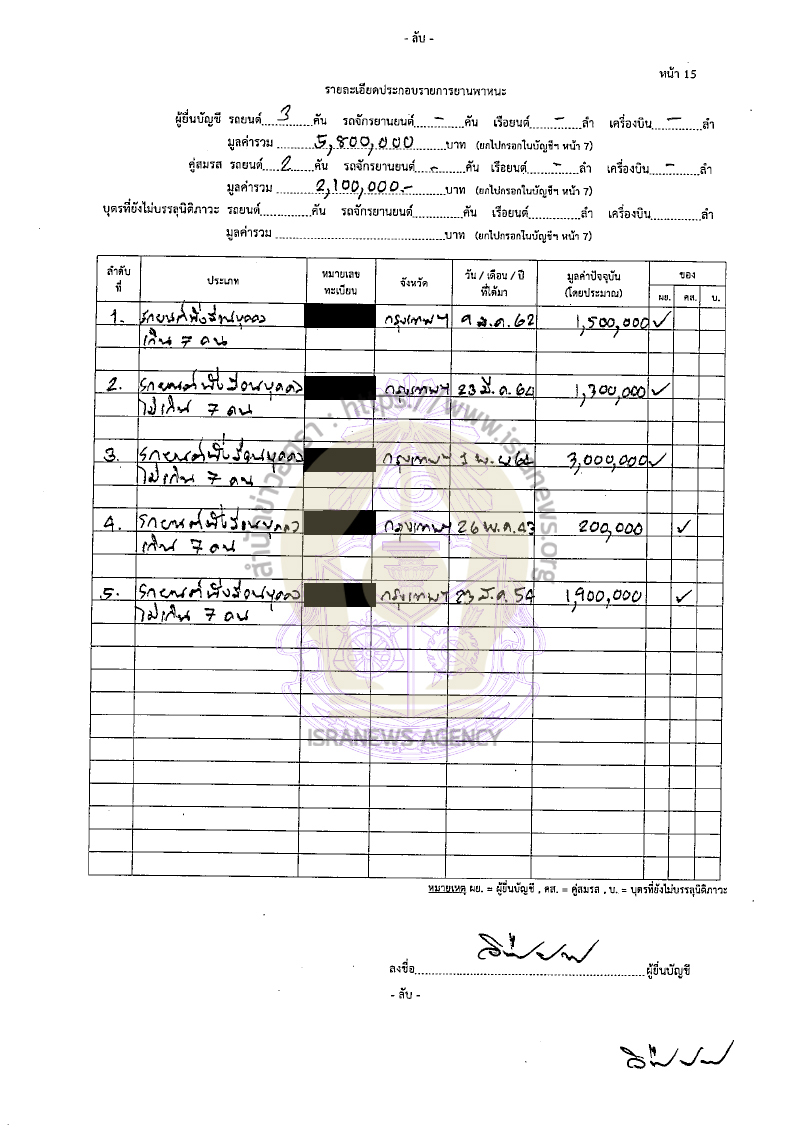 - ลับ -
หน้า 15
รายละเอียดประกอบรายการยานพาหนะ
ผู้ยื่นบัญชี รถยนต์ 3 คัน รถจักรยานยนต์ - คัน เรือยนต์ - ลำ เครื่องบิน - ลำ
มูลค่ารวม 5,800,000 บาท (ยกไปกรอกในบัญชีฯ หน้า 7)
คู่สมรส รถยนต์ 2 คัน รถจักรยานยนต์ - คัน เรือยนต์ - ลำ เครื่องบิน - ลำ
มูลค่ารวม 2,100,000.- บาท (ยกไปกรอกในบัญชีฯ หน้า 7)
บุตรที่ยังไม่บรรลุนิติภาวะ รถยนต์ คัน รถจักรยานยนต์ คัน เรือยนต์ ลำ เครื่องบิน ลำ
มูลค่ารวม บาท (ยกไปกรอกในบัญชีฯ หน้า 7)
ลำดับที่ ประเภท หมายเลขทะเบียน จังหวัด วัน / เดือน / ปี ที่ได้มา มูลค่าปัจจุบัน (โดยประมาณ) ของ
ผย. คส. บ.
1. รถยนต์นั่งส่วนบุคคล กรุงเทพฯ 9 ส.ค. 62 1,500,000 ✓
เกิน 7 คน
2. รถยนต์นั่งส่วนบุคคล กรุงเทพฯ 23 มี.ค. 64 1,300,000 ✓
ไม่เกิน 7 คน
3. รถยนต์นั่งส่วนบุคคล กรุงเทพฯ พ.ย. 3,000,000 ✓
ไม่เกิน 7 คน
4. รถยนต์นั่งส่วนบุคคล กรุงเทพฯ 26 พ.ค. 43 200,000 ✓
เกิน 7 คน
5. รถยนต์นั่งส่วนบุคคล กรุงเทพฯ 23 มี.ค. 54 1,900,000 ✓
ไม่เกิน 7 คน
สำนักข่าวอิศรา : https://www.isranews.org
ISRANEWS AGENCY
หมายเหตุ ผย. = ผู้ยื่นบัญชี , คส. = คู่สมรส , บ. = บุตรที่ยังไม่บรรลุนิติภาวะ
ลงชื่อ ผู้ยื่นบัญชี
- ลับ -